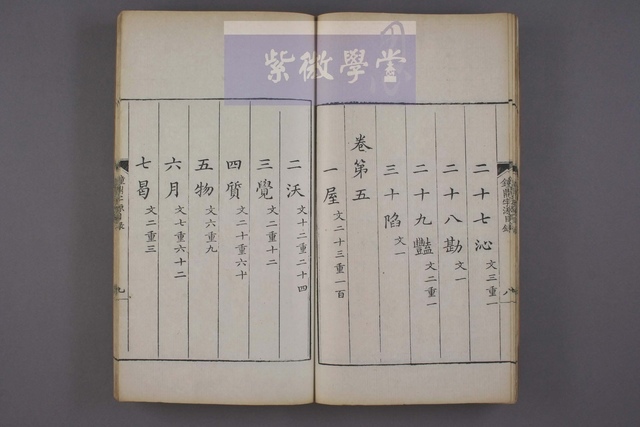 紫微學堂
二十七沁 文三重一
二十八勘 文一
二十九豔 文二重一
三十陷 文一
卷第五
一屋 文二十三重一百
二沃 文十二重二十四
三覺 文二重十二
四質 文二十重六十
五物 文六重九
六月 文七重六十二
七曷 文二重三
八
九